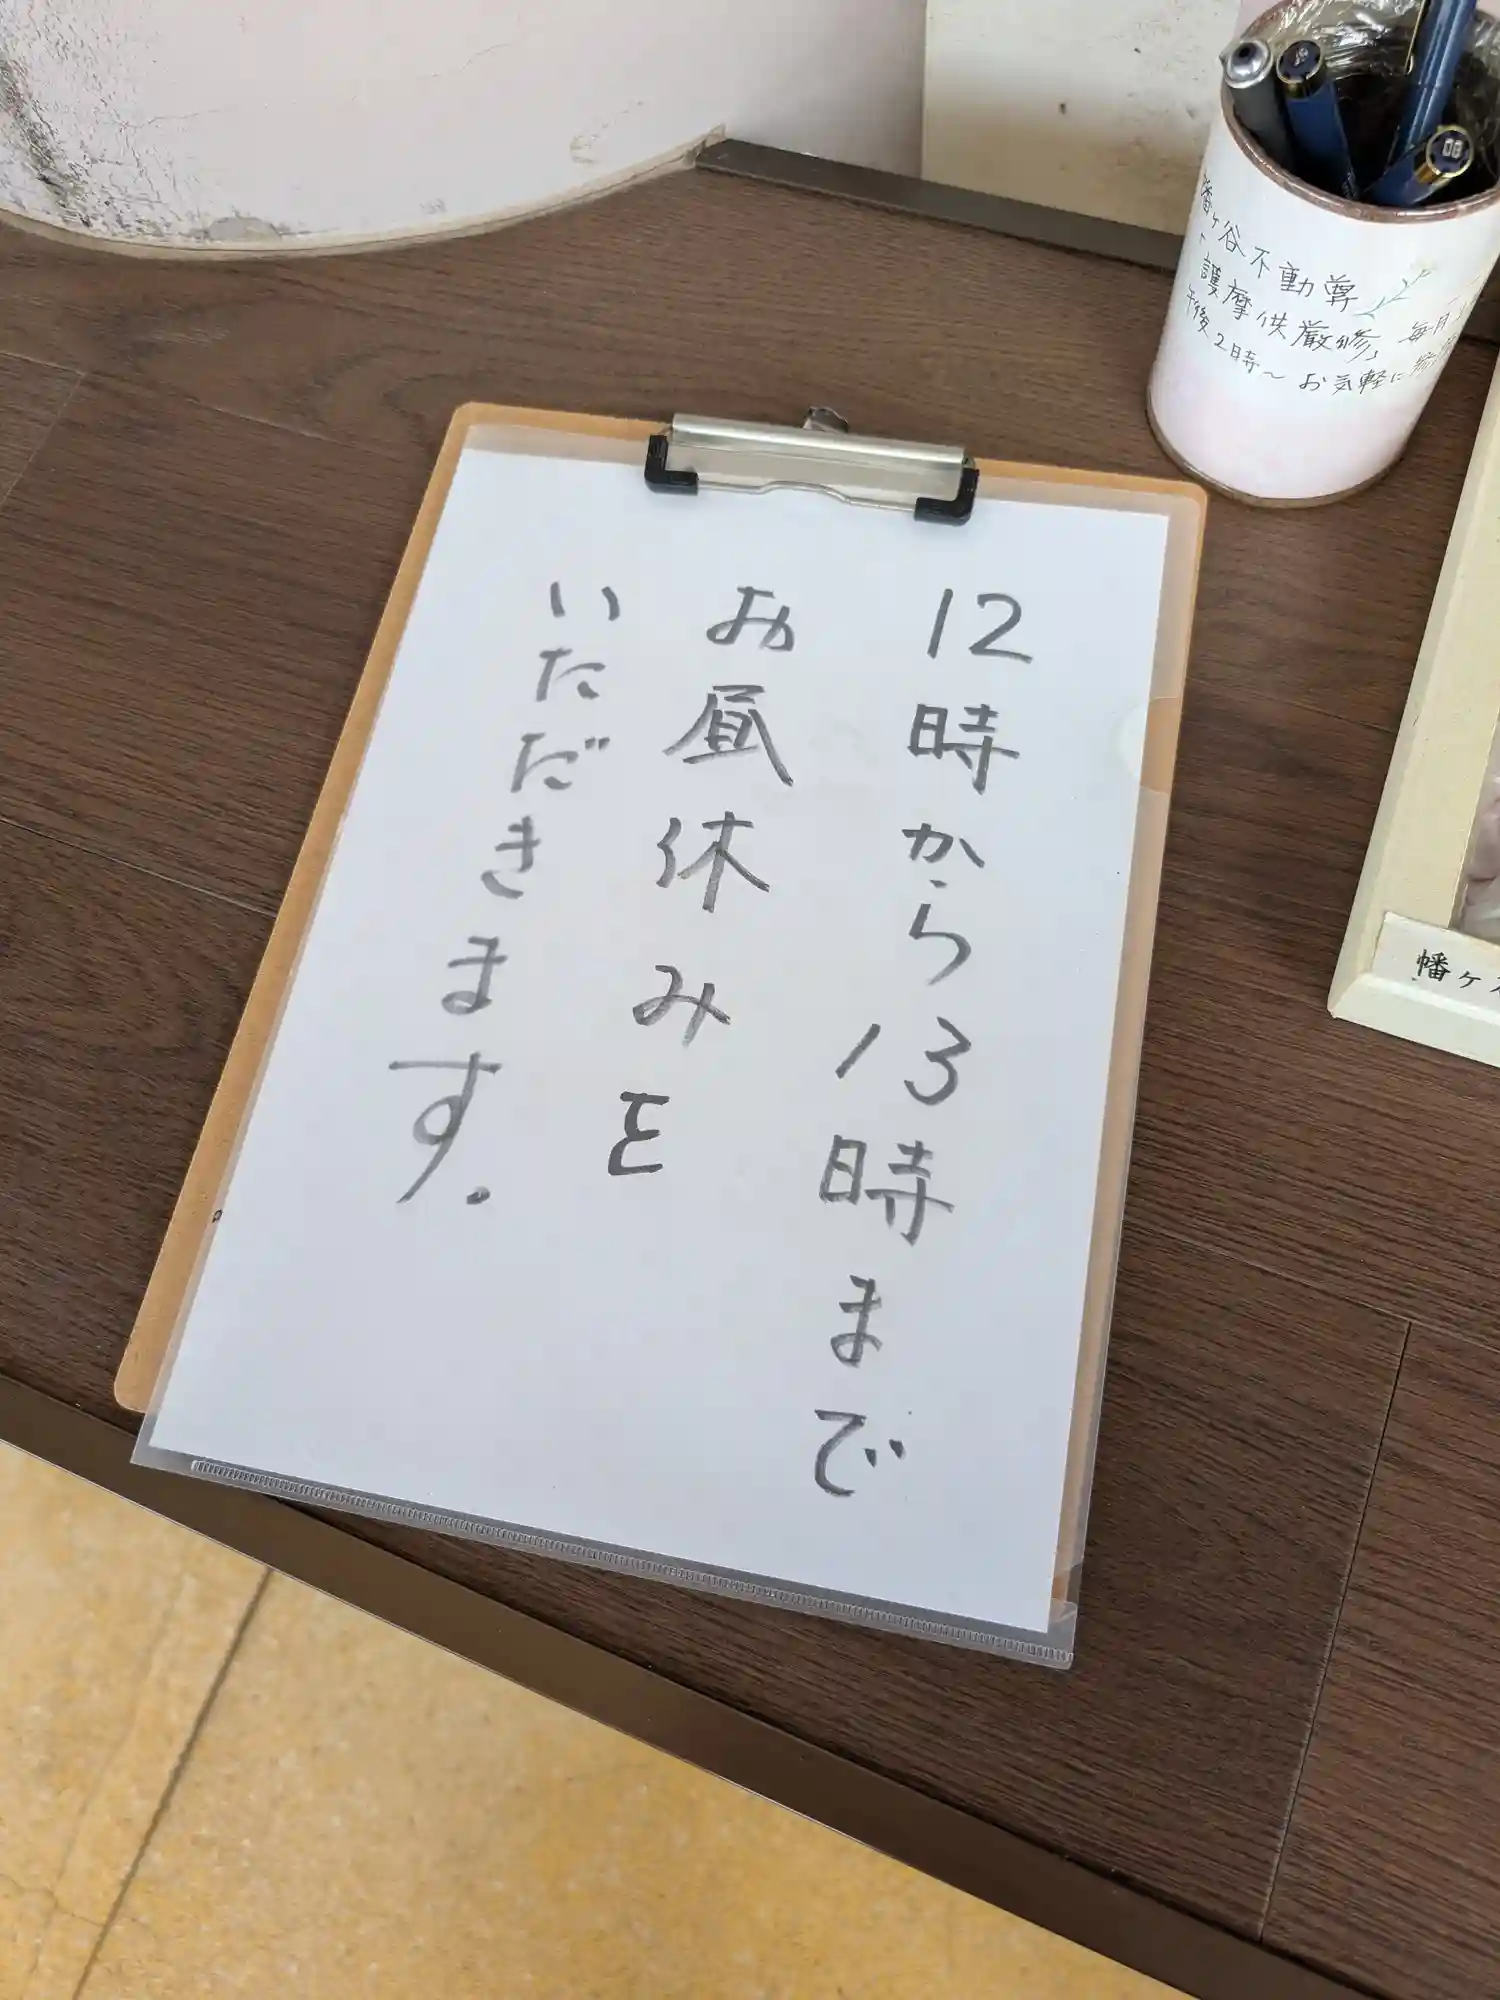 12時から13時まで
お昼休みを
いただきます.
幡ヶ谷不動尊
「護摩供厳修」 毎月
午後2時〜 お気軽に
幡ヶ
08